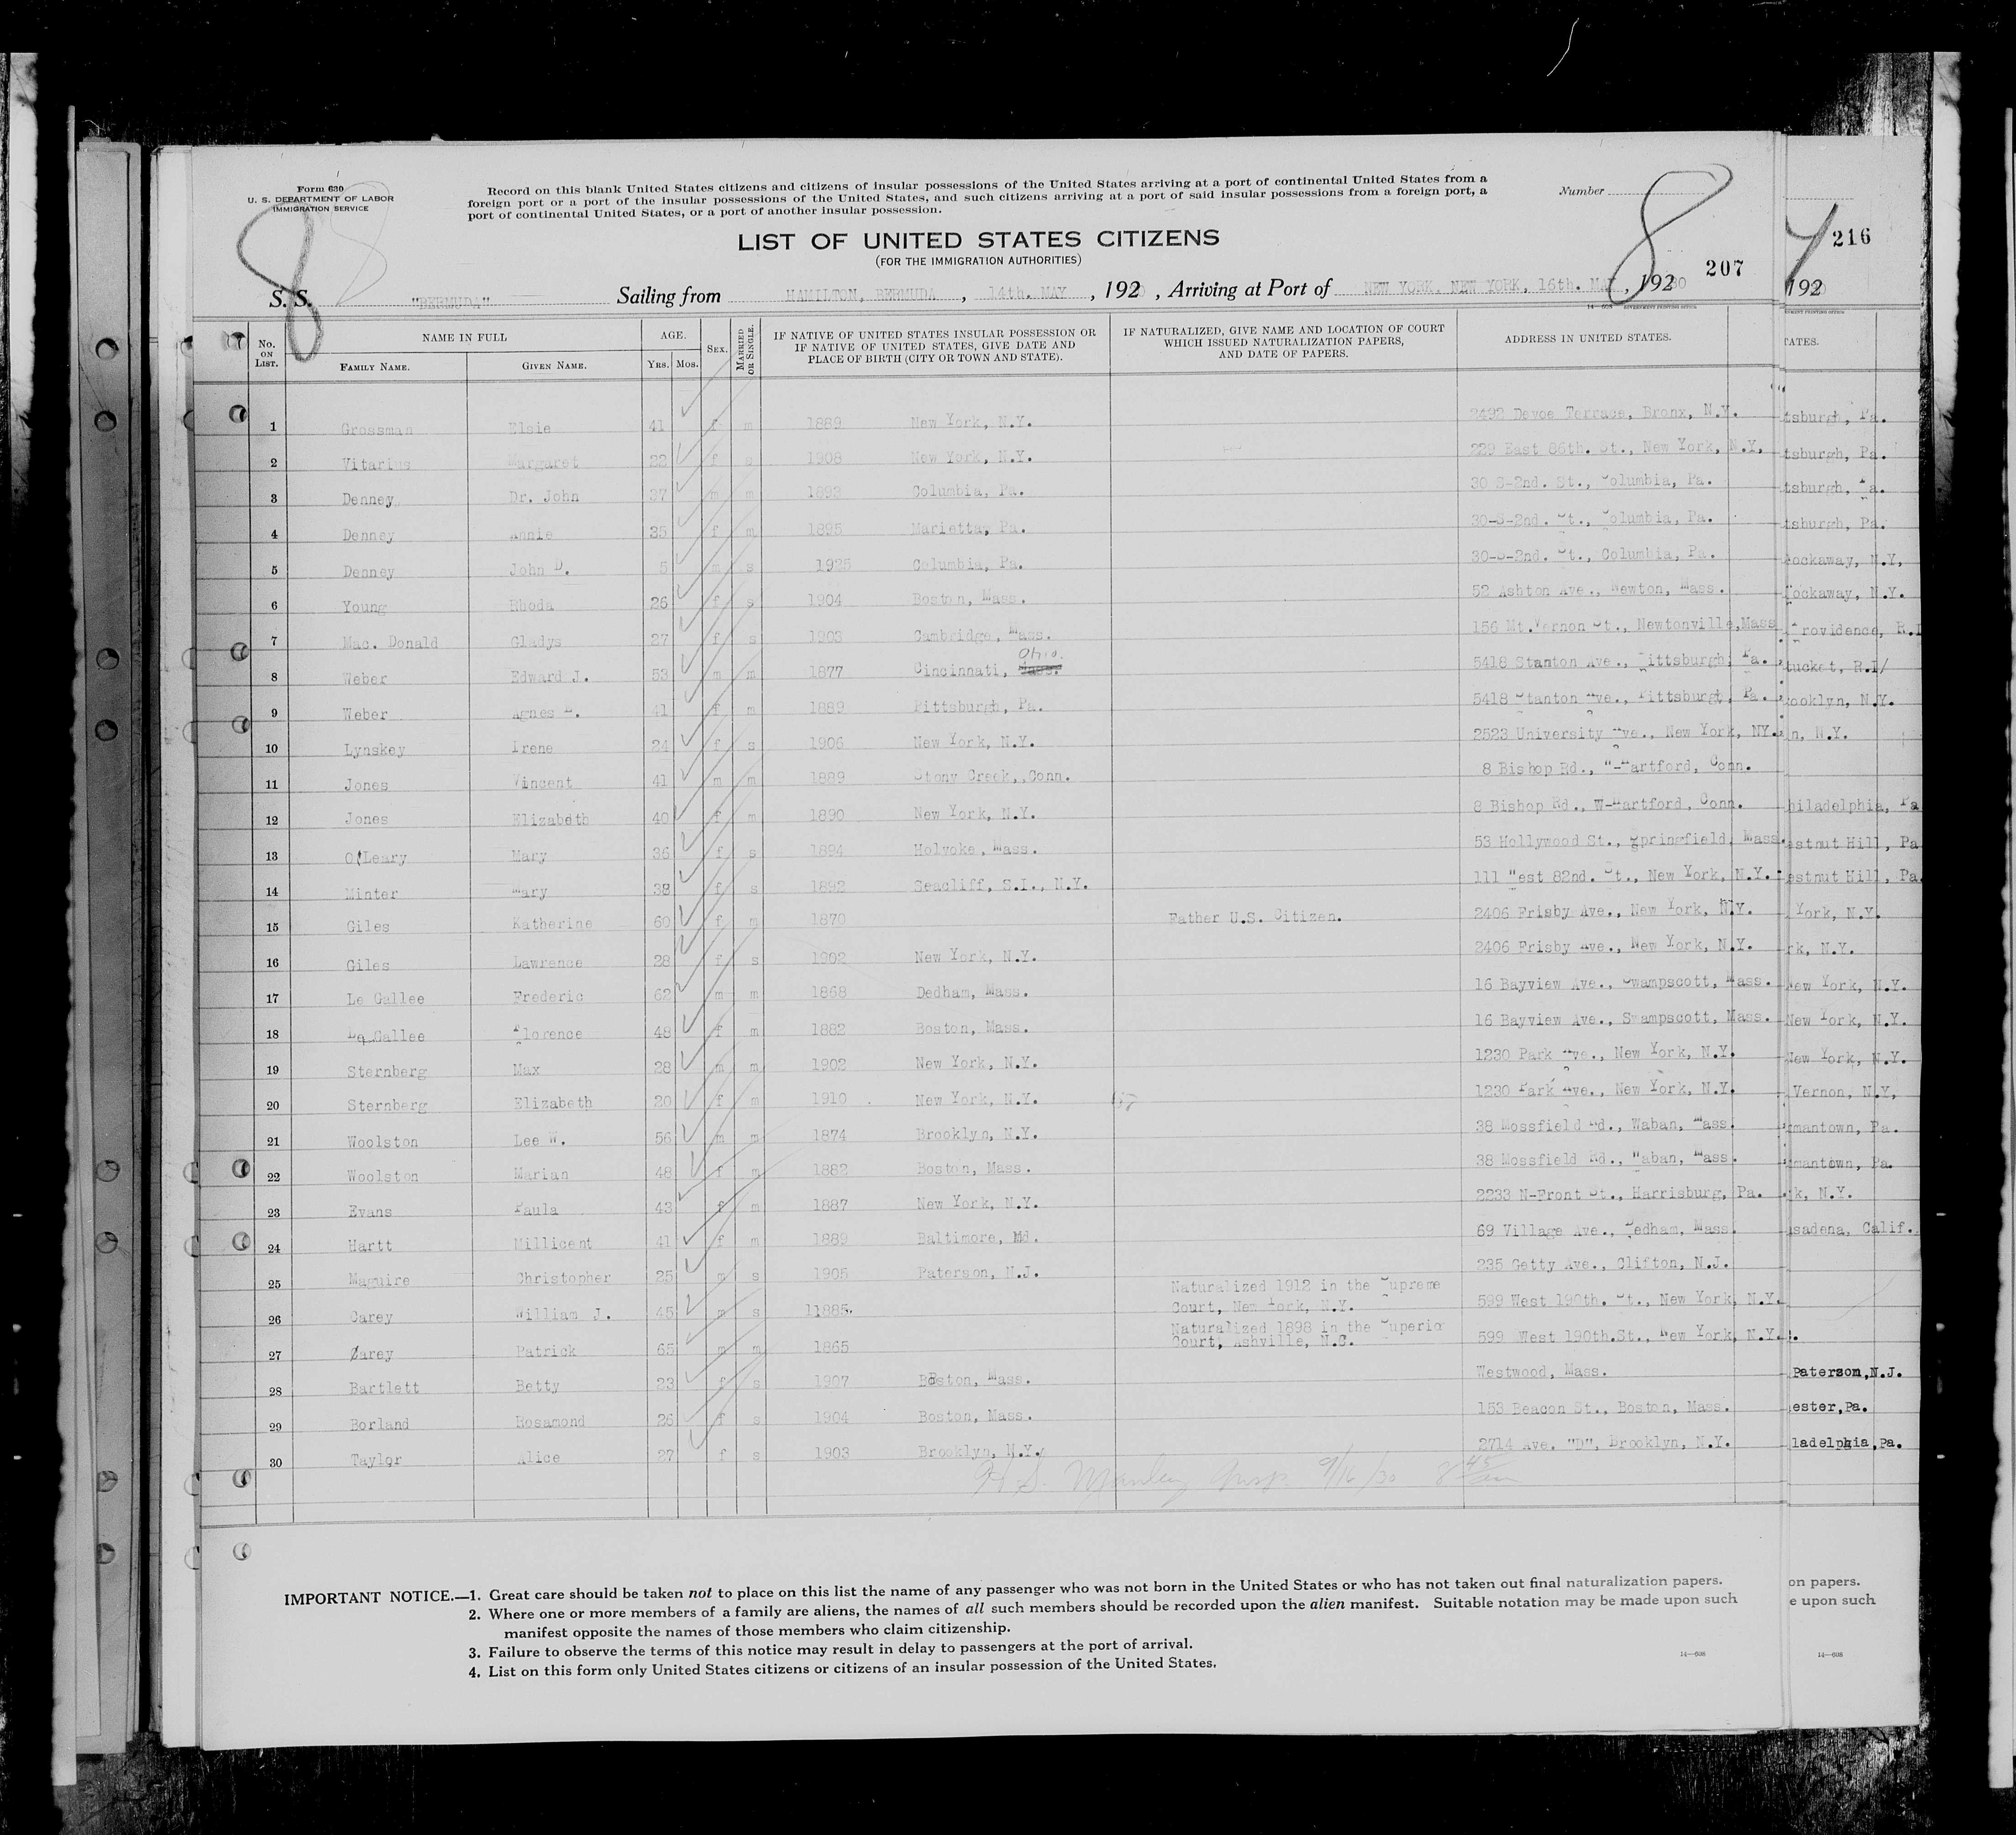 Form 630
U. S. DEPARTMENT OF LABOR
IMMIGRATION SERVICE
Record on this blank United States citizens and citizens of insular possessions of the United States arriving at a port of continental United States from a
foreign port or a port of the insular possessions of the United States, and such citizens arriving at a port of said insular possessions from a foreign port, a
port of continental United States, or a port of another insular possession.
Number
8 8
4 216
LIST OF UNITED STATES CITIZENS
(FOR THE IMMIGRATION AUTHORITIES)
207
S. S. "BERMUDA" Sailing from HAMILTON, BERMUDA, 14th. MAY, 192 , Arriving at Port of NEW YORK, NEW YORK, 16th. MAY, 19230 192
14—608 GOVERNMENT PRINTING OFFICE
No. ON LIST. NAME IN FULL AGE. SEX. MARRIED OR SINGLE. IF NATIVE OF UNITED STATES INSULAR POSSESSION OR IF NATIVE OF UNITED STATES, GIVE DATE AND PLACE OF BIRTH (CITY OR TOWN AND STATE). IF NATURALIZED, GIVE NAME AND LOCATION OF COURT WHICH ISSUED NATURALIZATION PAPERS, AND DATE OF PAPERS. ADDRESS IN UNITED STATES. TATES.
FAMILY NAME. GIVEN NAME. YRS. MOS.
1 Grossman Elsie 41 f m 1889 New York, N.Y. 2492 Devoe Terrace, Bronx, N.Y. tsburgh, Pa.
2 Vitarius Margaret 22 f s 1908 New York, N.Y. 229 East 86th. St., New York, N.Y. tsburgh, Pa.
3 Denney Dr. John 37 m m 1893 Columbia, Pa. 30 S-2nd. St., Columbia, Pa. tsburgh, Pa.
4 Denney Annie 35 f m 1895 Marietta, Pa. 30-S-2nd. St., Columbia, Pa. tsburgh, Pa.
5 Denney John D. 5 m s 1925 Columbia, Pa. 30-S-2nd. St., Columbia, Pa. ockaway, N.Y,
6 Young Rhoda 26 f s 1904 Boston, Mass. 52 Ashton Ave., Newton, Mass. ockaway, N.Y.
7 Mac. Donald Gladys 27 f s 1903 Cambridge, Mass. 156 Mt.Vernon St., Newtonville,Mass Providence, R.I
8 Weber Edward J. 53 m m 1877 Cincinnati, Ohio. 5418 Stanton Ave., Pittsburgh, Pa. tucket, R.I/
9 Weber Agnes 41 f m 1889 Pittsburgh, Pa. 5418 Stanton Ave., Pittsburgh, Pa. ooklyn, N.Y.
10 Lynskey Irene 24 f s 1906 New York, N.Y. 2523 University Ave., New York, NY. n, N.Y.
11 Jones Vincent 41 m m 1889 Stony Creek,,Conn. 8 Bishop Rd., W-Hartford, Conn.
12 Jones Elizabeth 40 f m 1890 New York, N.Y. 8 Bishop Rd., W-Hartford, Conn. hiladelphia, Pa
13 O'Leary Mary 36 f s 1894 Holyoke, Mass. 53 Hollywood St., Springfield, Mass. estnut Hill, Pa
14 Minter Mary 38 f s 1892 Seacliff, S.I., N.Y. 111 West 82nd. St., New York, N.Y. estnut Hill, Pa.
15 Giles Katherine 60 f m 1870 Father U.S. Citizen. 2406 Frisby Ave., New York, N.Y. York, N.Y.
16 Giles Lawrence 28 f s 1902 New York, N.Y. 2406 Frisby Ave., New York, N.Y. rk, N.Y.
17 Le Gallee Frederic 62 m m 1868 Dedham, Mass. 16 Bayview Ave., Swampscott, Mass. New York, N.Y.
18 Le Gallee Florence 48 f m 1882 Boston, Mass. 16 Bayview Ave., Swampscott, Mass. New York, N.Y.
19 Sternberg Max 28 m m 1902 New York, N.Y. 1230 Park Ave., New York, N.Y. New York, N.Y.
20 Sternberg Elizabeth 20 f m 1910 . New York, N.Y. 1230 Park Ave., New York, N.Y. Vernon, N.Y,
21 Woolston Lee W. 56 m m 1874 Brooklyn, N.Y. 38 Mossfield Rd., Waban, Mass. rmantown, Pa.
22 Woolston Marian 48 f m 1882 Boston, Mass. 38 Mossfield Rd., Waban, Mass. rmantown, Pa.
23 Evans Paula 43 f m 1887 New York, N.Y. 2233 N-Front St., Harrisburg, Pa. k, N.Y.
24 Hartt Millicent 41 f m 1889 Baltimore, Md. 69 Village Ave., Dedham, Mass. sadena, Calif.
25 Maguire Christopher 25 m s 1905 Paterson, N.J. 235 Getty Ave., Clifton, N.J.
26 Carey William J. 45 m s 11885. Naturalized 1912 in the Supreme Court, New York, N.Y. 599 West 190th. St., New York, N.Y.
27 Carey Patrick 65 m m 1865 Naturalized 1898 in the Superio Court, Ashville, N.C. 599 West 190th.St., New York, N.Y.
28 Bartlett Betty 23 f s 1907 Boston, Mass. Westwood, Mass. Paterson,N.J.
29 Borland Rosamond 26 f s 1904 Boston, Mass. 153 Beacon St., Boston, Mass. ester,Pa.
30 Taylor Alice 27 f s 1903 Brooklyn, N.Y. 2714 Ave. "D", Brooklyn, N.Y. ladelphia,Pa.
IMPORTANT NOTICE.—1. Great care should be taken not to place on this list the name of any passenger who was not born in the United States or who has not taken out final naturalization papers. on papers.
2. Where one or more members of a family are aliens, the names of all such members should be recorded upon the alien manifest. Suitable notation may be made upon such e upon such
manifest opposite the names of those members who claim citizenship.
3. Failure to observe the terms of this notice may result in delay to passengers at the port of arrival.
4. List on this form only United States citizens or citizens of an insular possession of the United States.
14—608 14—608